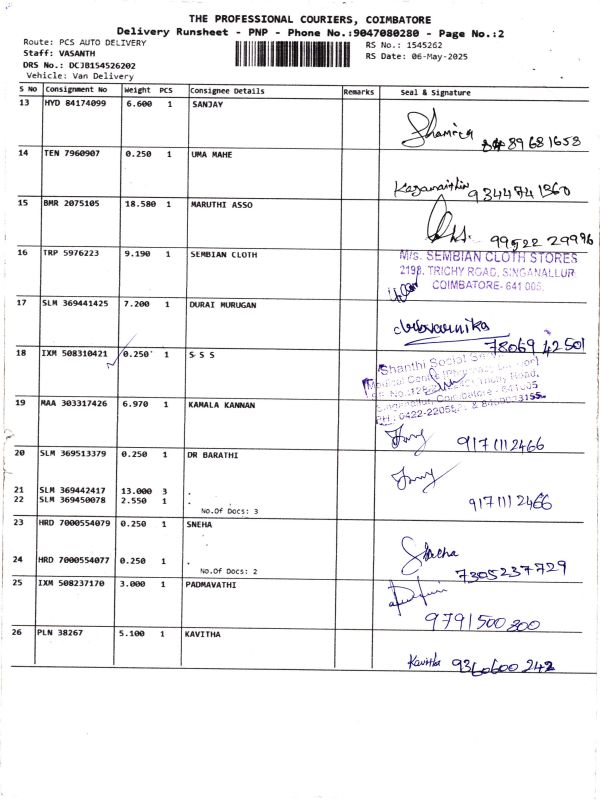 THE PROFESSIONAL COURIERS, COIMBATORE
Delivery Runsheet - PNP - Phone No.:9047080280 - Page No.:2
Route: PCS AUTO DELIVERY
RS No.: 1545262
Staff: VASANTH
RS Date: 06-May-2025
DRS No.: DCJB154526202
Vehicle: Van Delivery
S No Consignment No Weight PCS Consignee Details Remarks Seal & Signature
13 HYD 84174099 6.600 1 SANJAY
89681658
14 TEN 7960907 0.250 1 UMA MAHE
9344741360
15 BMR 2075105 18.580 1 MARUTHI ASSO
99522 29996
16 TRP 5976223 9.190 1 SEMBIAN CLOTH
M/s. SEMBIAN CLOTH STORES
2198, TRICHY ROAD, SINGANALLUR
COIMBATORE- 641 005.
17 SLM 369441425 7.200 1 DURAI MURUGAN
78069 42501
18 IXM 508310421 0.250 1 S S S
Shanthi Social
Medical Centre
Trichy Road,
Singanallur, Coimbatore - 641005
PH.: 0422-2205
19 MAA 303317426 6.970 1 KAMALA KANNAN
9171112466
20 SLM 369513379 0.250 1 DR BARATHI
21 SLM 369442417 13.000 3 .
22 SLM 369450078 2.550 1 .
9171112466
No.Of Docs: 3
23 HRD 7000554079 0.250 1 SNEHA
24 HRD 7000554077 0.250 1 .
Sneha
No.Of Docs: 2
7305237729
25 IXM 508237170 3.000 1 PADMAVATHI
9791500800
26 PLN 38267 5.100 1 KAVITHA
Kavitha 9360600242